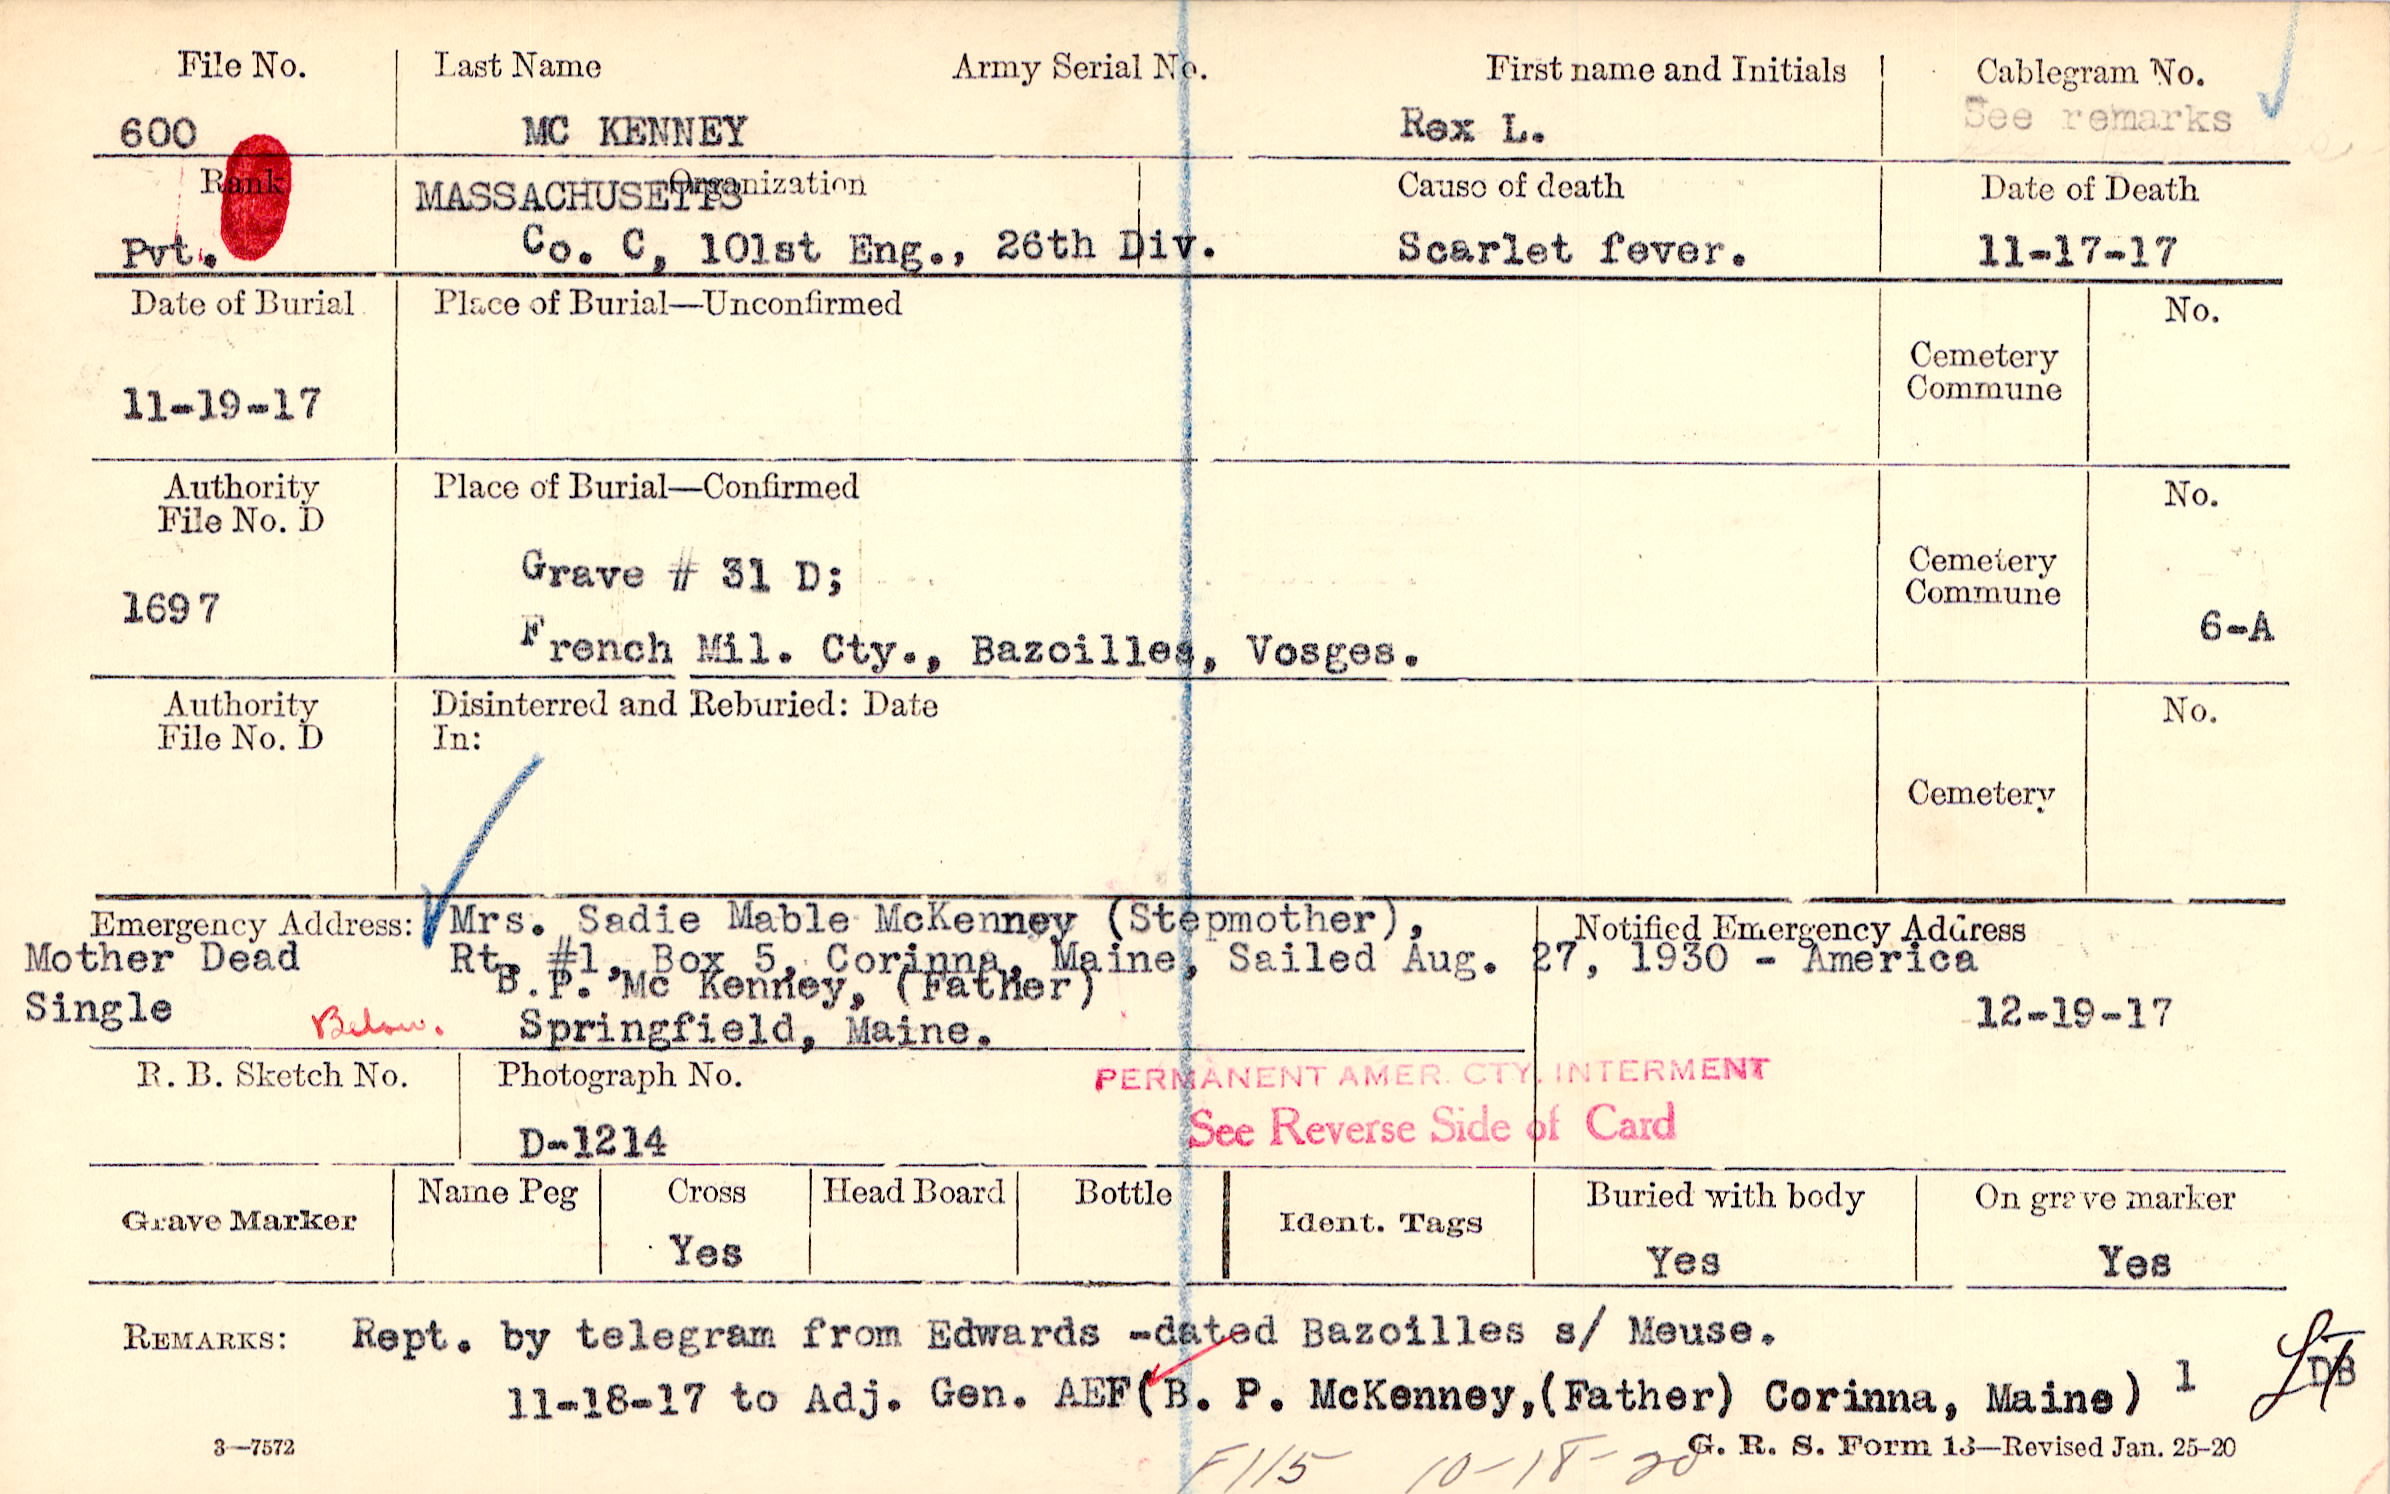 File No. Last Name Army Serial No. First name and Initials Cablegram No.
600 MC KENNEY Rex L. See remarks
Rank Organization Cause of death Date of Death
MASSACHUSETTS
Pvt. Co. C, 101st Eng., 26th Div. Scarlet fever. 11-17-17
Date of Burial Place of Burial—Unconfirmed No.
Cemetery
Commune
11-19-17
Authority Place of Burial—Confirmed No.
File No. D
Grave # 31 D; Cemetery
Commune
1697
French Mil. Cty., Bazoilles, Vosges. 6-A
Authority Disinterred and Reburied: Date No.
File No. D In:
Cemetery
Emergency Address: Mrs. Sadie Mable McKenney (Stepmother), Notified Emergency Address
Mother Dead Rt. #1, Box 5, Corinna, Maine, Sailed Aug. 27, 1930 - America
B.P. Mc Kenney, (Father)
Single Below. Springfield, Maine. 12-19-17
R. B. Sketch No. Photograph No. PERMANENT AMER. CTY. INTERMENT
D-1214 See Reverse Side of Card
Grave Marker Name Peg Cross Head Board Bottle Ident. Tags Buried with body On grave marker
Yes Yes Yes
REMARKS: Rept. by telegram from Edwards -dated Bazoilles s/ Meuse.
11-18-17 to Adj. Gen. AEF(B. P. McKenney,(Father) Corinna, Maine) 1 DB
3—7572 G. R. S. Form 13—Revised Jan. 25-20
F115 10-18-20